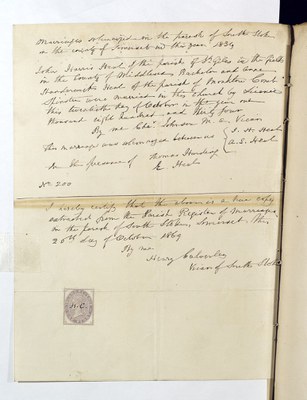 Marriages solemnized in the parish of South Stoke
in the county of Somerset in the year 1834
John Harris Heal of the parish of St Giles in the fields
in the County of Middlesex Bachelor and Anne
Heal of the parish of
Spinster were married in this church by License
this twentieth day of October in the year one
thousand eight hundred and thirty four
By me Chas Johnson M. A. Vicar
This marriage was solemnized between us J. H. Heal
A. S. Heal
In the presence of Thomas
E. Heal
No. 200
I hereby certify that the above is a true copy
extracted from the Parish Register of Marriages
in the parish of South Stoke, Somerset, this
20th Day of October 1869
By me
Henry Calverley
Vicar of South Stoke
H.C.